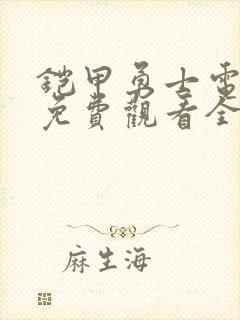 鎧甲勇士電
免費觀看全
麻生海